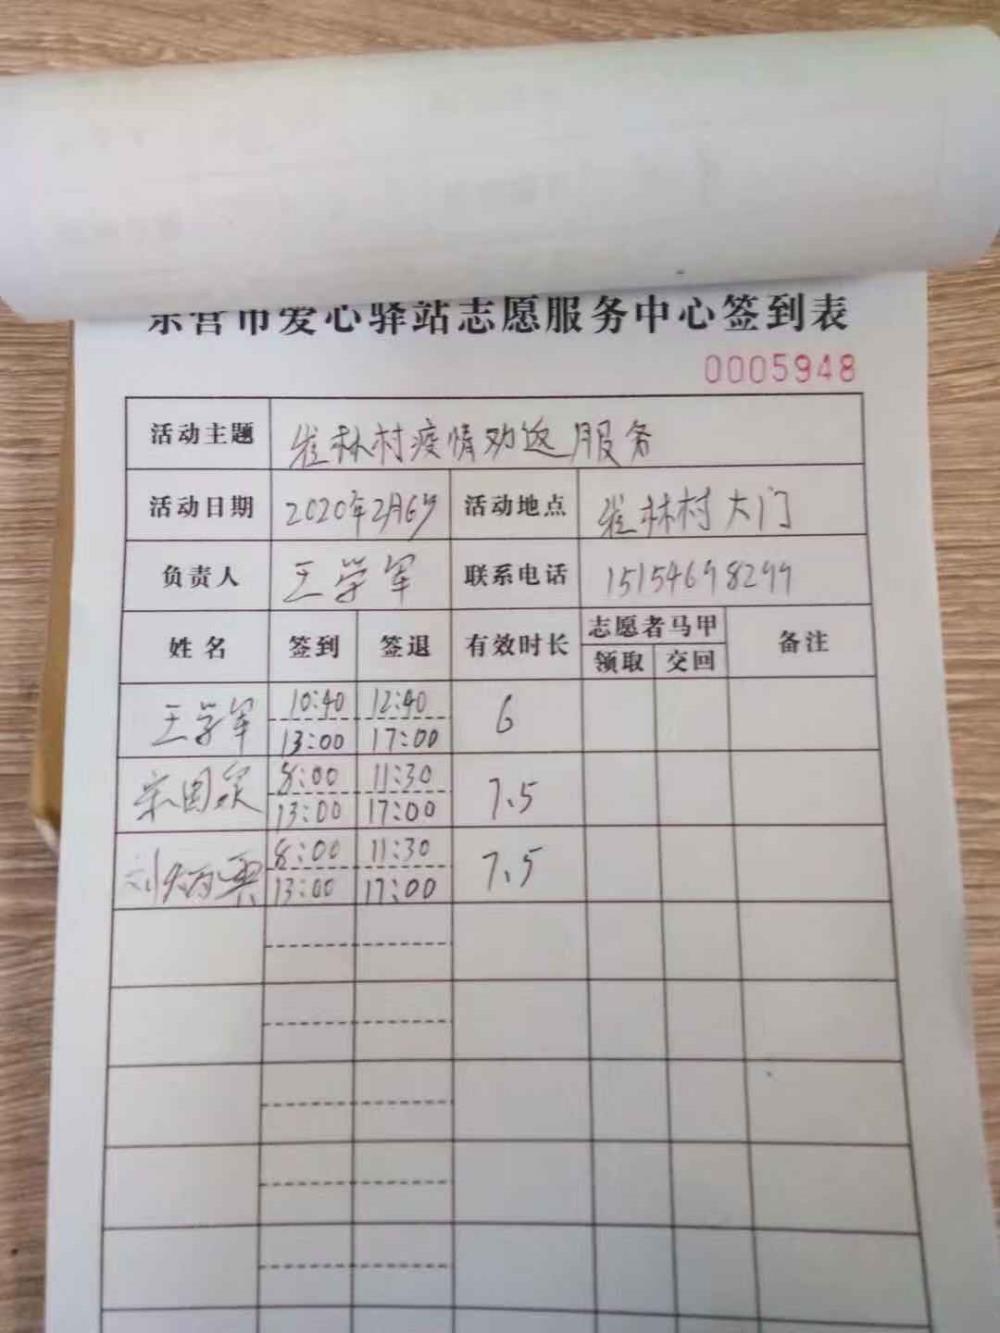 东营市爱心驿站志愿服务中心签到表
0005948
活动主题 崔林村疫情劝返服务
活动日期 2020年2月6号 活动地点 崔林村大门
负责人 王学军 联系电话 15154698299
姓名 签到 签退 有效时长 志愿者马甲 备注
领取 交回
王学军 10:40 12:40 6
13:00 17:00
宋国 8:00 11:30 7.5
13:00 17:00
刘炳 8:00 11:30 7.5
13:00 17:00